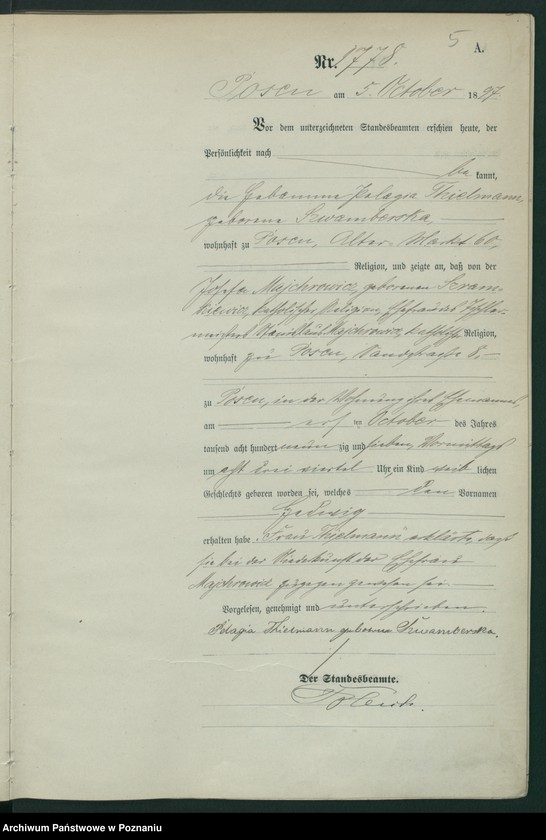 5
A.
Nr. 1778.
Posen am 5. October 1897
Vor dem unterzeichneten Standesbeamten erschien heute, der
Persönlichkeit nach
bekannt,
die Hebamme Pelagia Thielmann,
geborene Szwamberska,
wohnhaft zu Posen, Alter Markt 60,
Religion, und zeigte an, daß von der
Josefa Majchrowicz, geborenen
katholischer Religion, Ehefrau des
Stanislaus Majchrowicz, katholischer Religion,
wohnhaft zu Posen, 8,
zu Posen, in der Wohnung ihres Ehemannes,
am ersten October des Jahres
tausend acht hundert neunzig und sieben, Vormittags
um acht drei viertel Uhr, ein Kind weiblichen
Geschlechts geboren worden sei, welches den Vornamen
Hedwig
erhalten habe. Frau Thielmann erklärte, daß
sie bei der Niederkunft der Ehefrau
Majchrowicz zugegen gewesen sei.
Vorgelesen, genehmigt und unterschrieben.
Pelagia Thielmann geborene Szwamberska.
Der Standesbeamte.
Archiwum Państwowe w Poznaniu